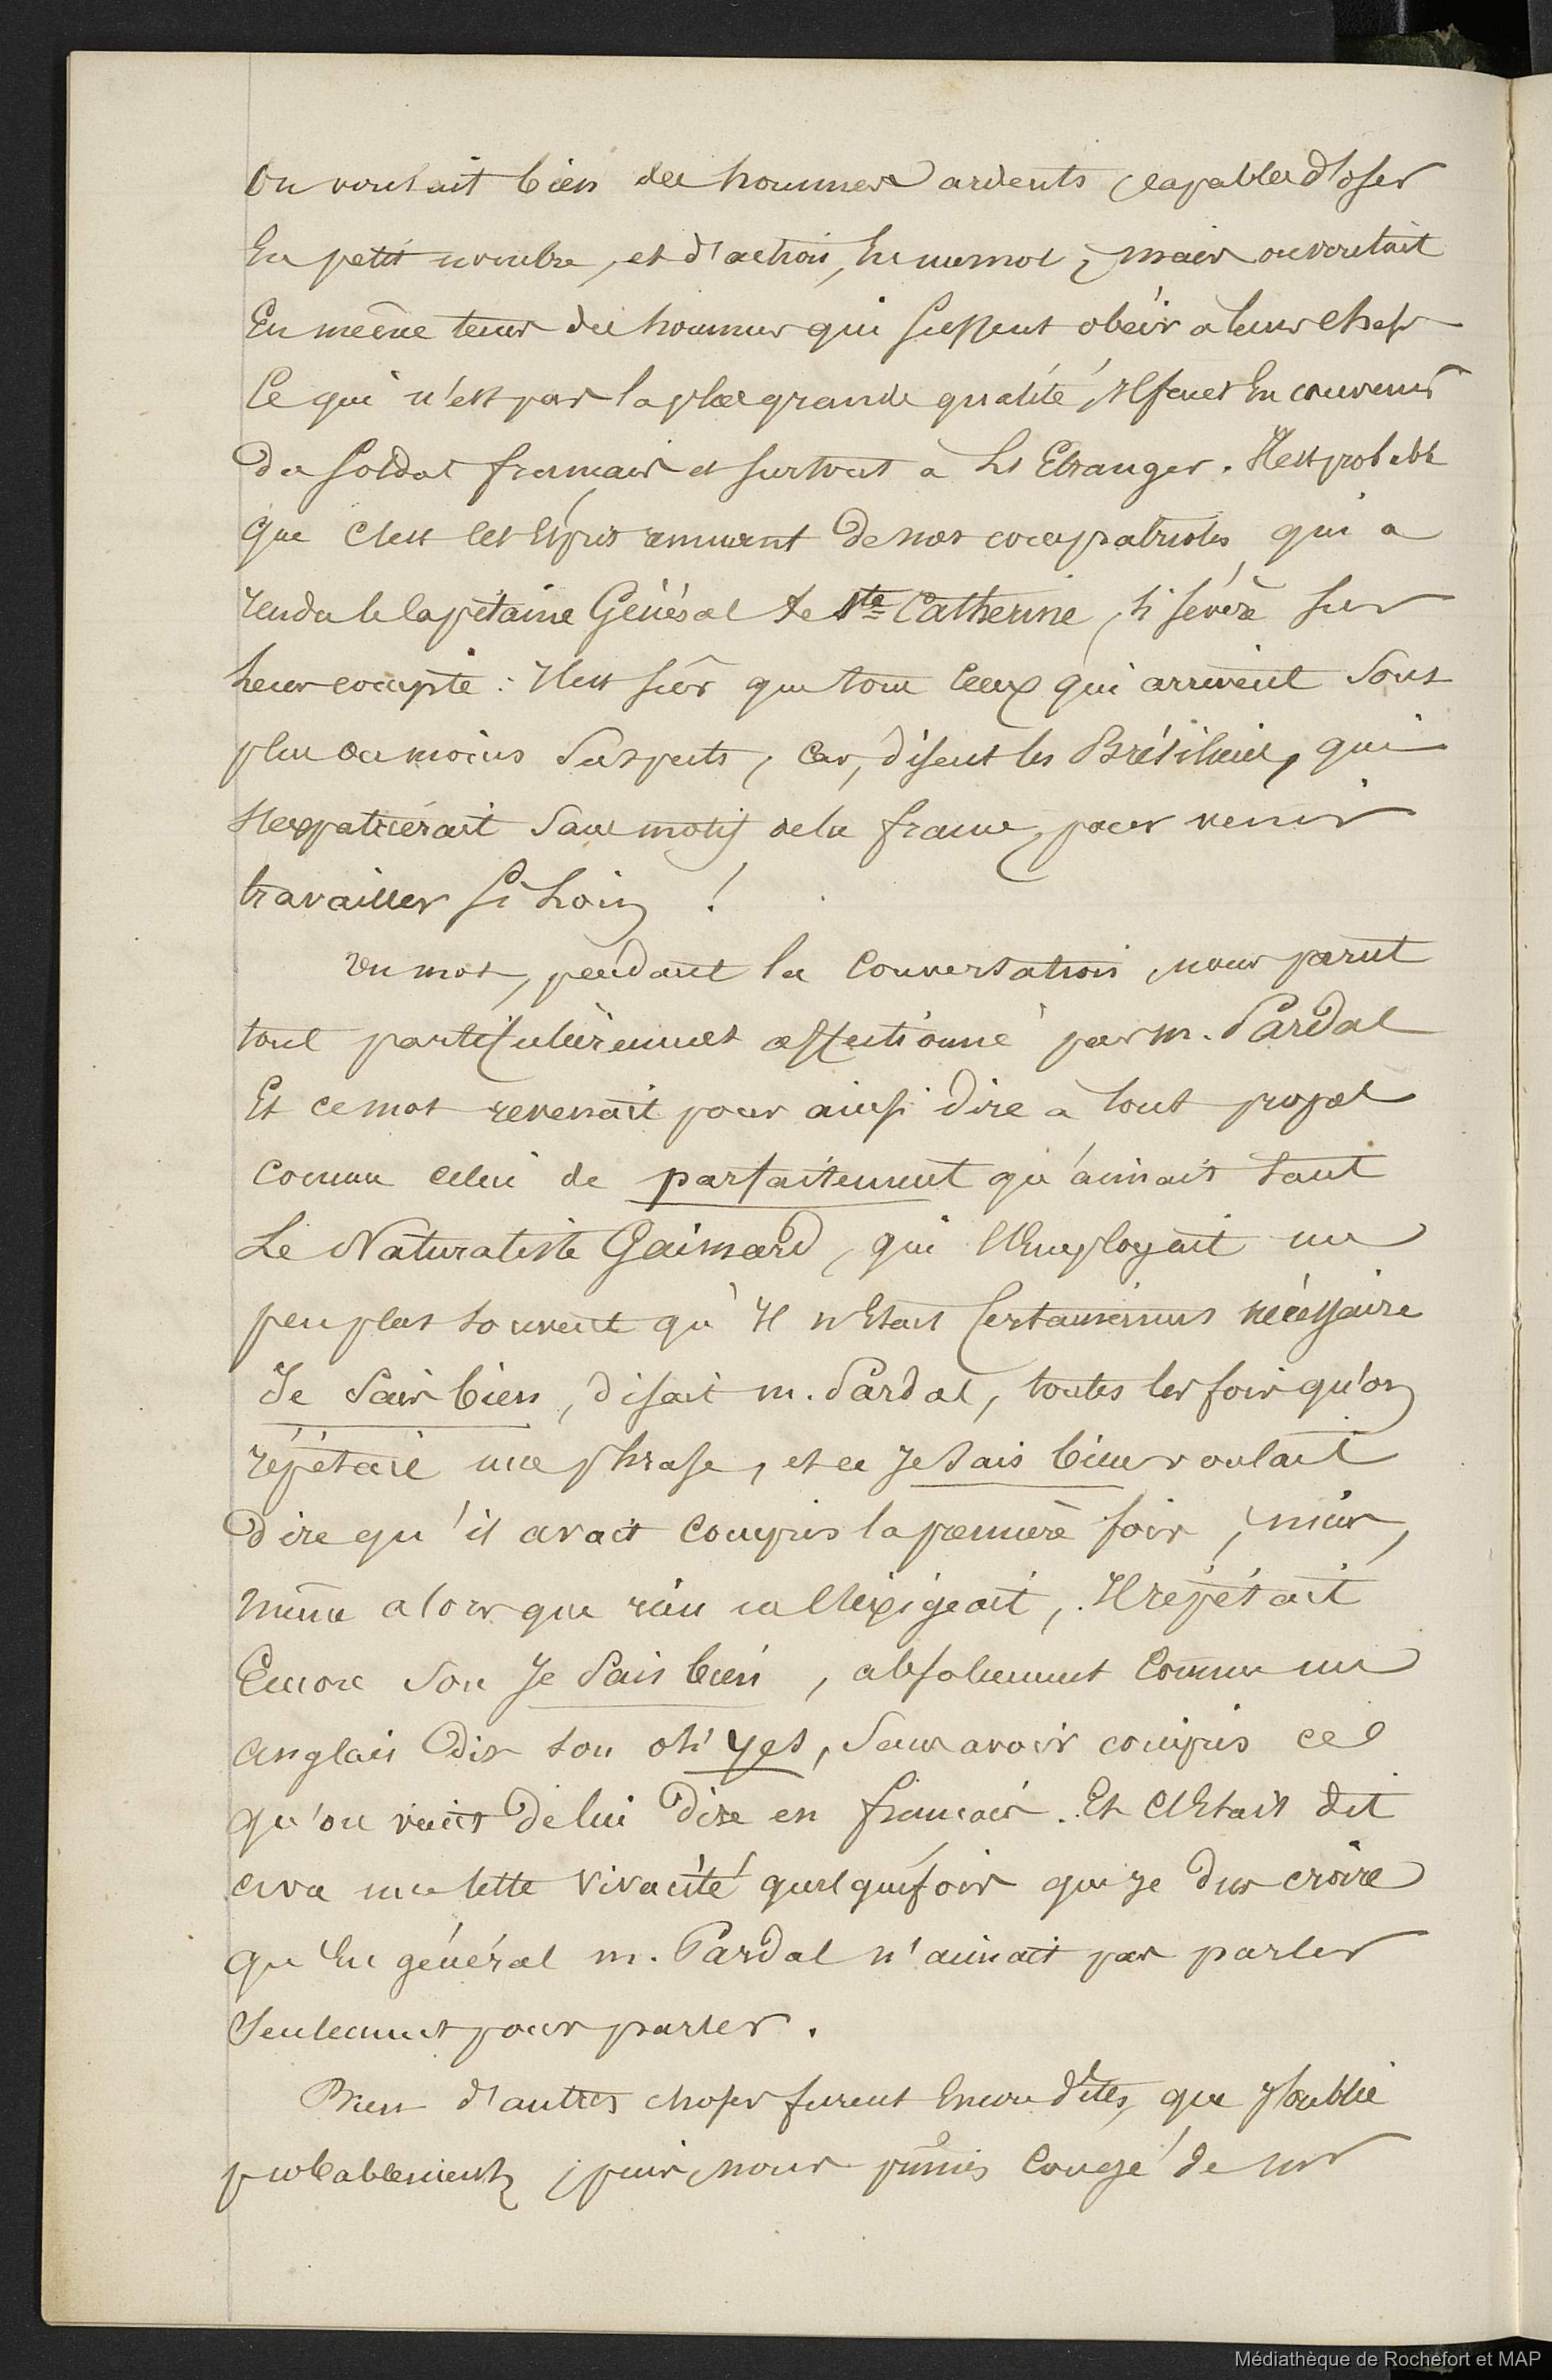 On voulait bien des hommes ardents, capables d'oser
En petit nombre, et d'action, En un mot ; mais on voulait
En même tems des hommes qui sussent obéir à leurs chefs
Ce qui n'est pas la plus grande qualité, Il faut En convenir
du soldat français et surtout à L'Etranger. Il est probable
que C'est cet Esprit remuant de nos compatriotes, qui a
rendu le Capitaine Général de Ste Catherine, si sévère sur
Leur compte : Il est sûr que tous Ceux qui arrivent sont
plus ou moins suspects, Car, disent les Brésiliens, qui
s'expatrierait sans motif de la france, pour venir
travailler si Loin !
Un mot, pendant la Conversation, nous parut
tout particulièrement affectionné par M. Pardal
Et ce mot revenait pour ainsi dire à tout propos
comme celui de parfaitement qu'aimait tant
Le Naturaliste Gaimard, qui l'Employait un
peu plus souvent qu'Il n'Etait Certainement nécessaire
Je Sais bien, disait M. Pardal, toutes les fois qu'on
répétait une phrase, et ce Je Sais bien voulait
dire qu'il avait Compris la premiere fois ; mais,
même alors que rien ne l'Exigeait, Il répétait
Encore son Je Sais bien, absolument Comme un
anglais dit son oh! yes, sans avoir compris ce
qu'on vient de lui dire en français. Et C'Etait dit
avec une telle vivacité quelquefois que je dus croire
qu'En général M. Pardal n'aimait pas parler
Seulement pour parler.
Bien d'autres choses furent Encore dites, que j'oublie
probablement ; puis, nous primes Congé de nos
Médiathèque de Rochefort et MAP